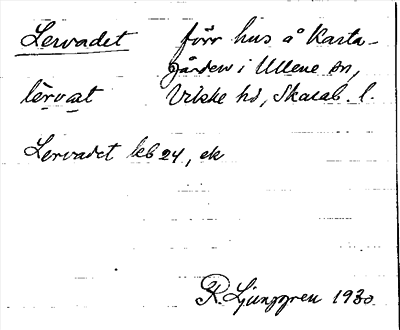 Lervadet förr hus å Karta-
gården i Ullene sn,
lèrvat Vilske hd, Skarab. l.
Lervadet kb 24, ek
R. Ljunggren 1930